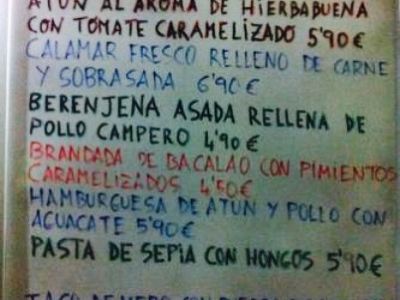 ATUN AL AROMA DE HIERBABUENA
CON TOMATE CARAMELIZADO 5'90€
CALAMAR FRESCO RELLENO DE CARNE
Y SOBRASADA 6'90€
BERENJENA ASADA RELLENA DE
POLLO CAMPERO 4'90€
BRANDADA DE BACALAO CON PIMIENTOS
CARAMELIZADOS 4'50€
HAMBURGUESA DE ATUN Y POLLO CON
AGUACATE 5'90€
PASTA DE SEPIA CON HONGOS 5'90€